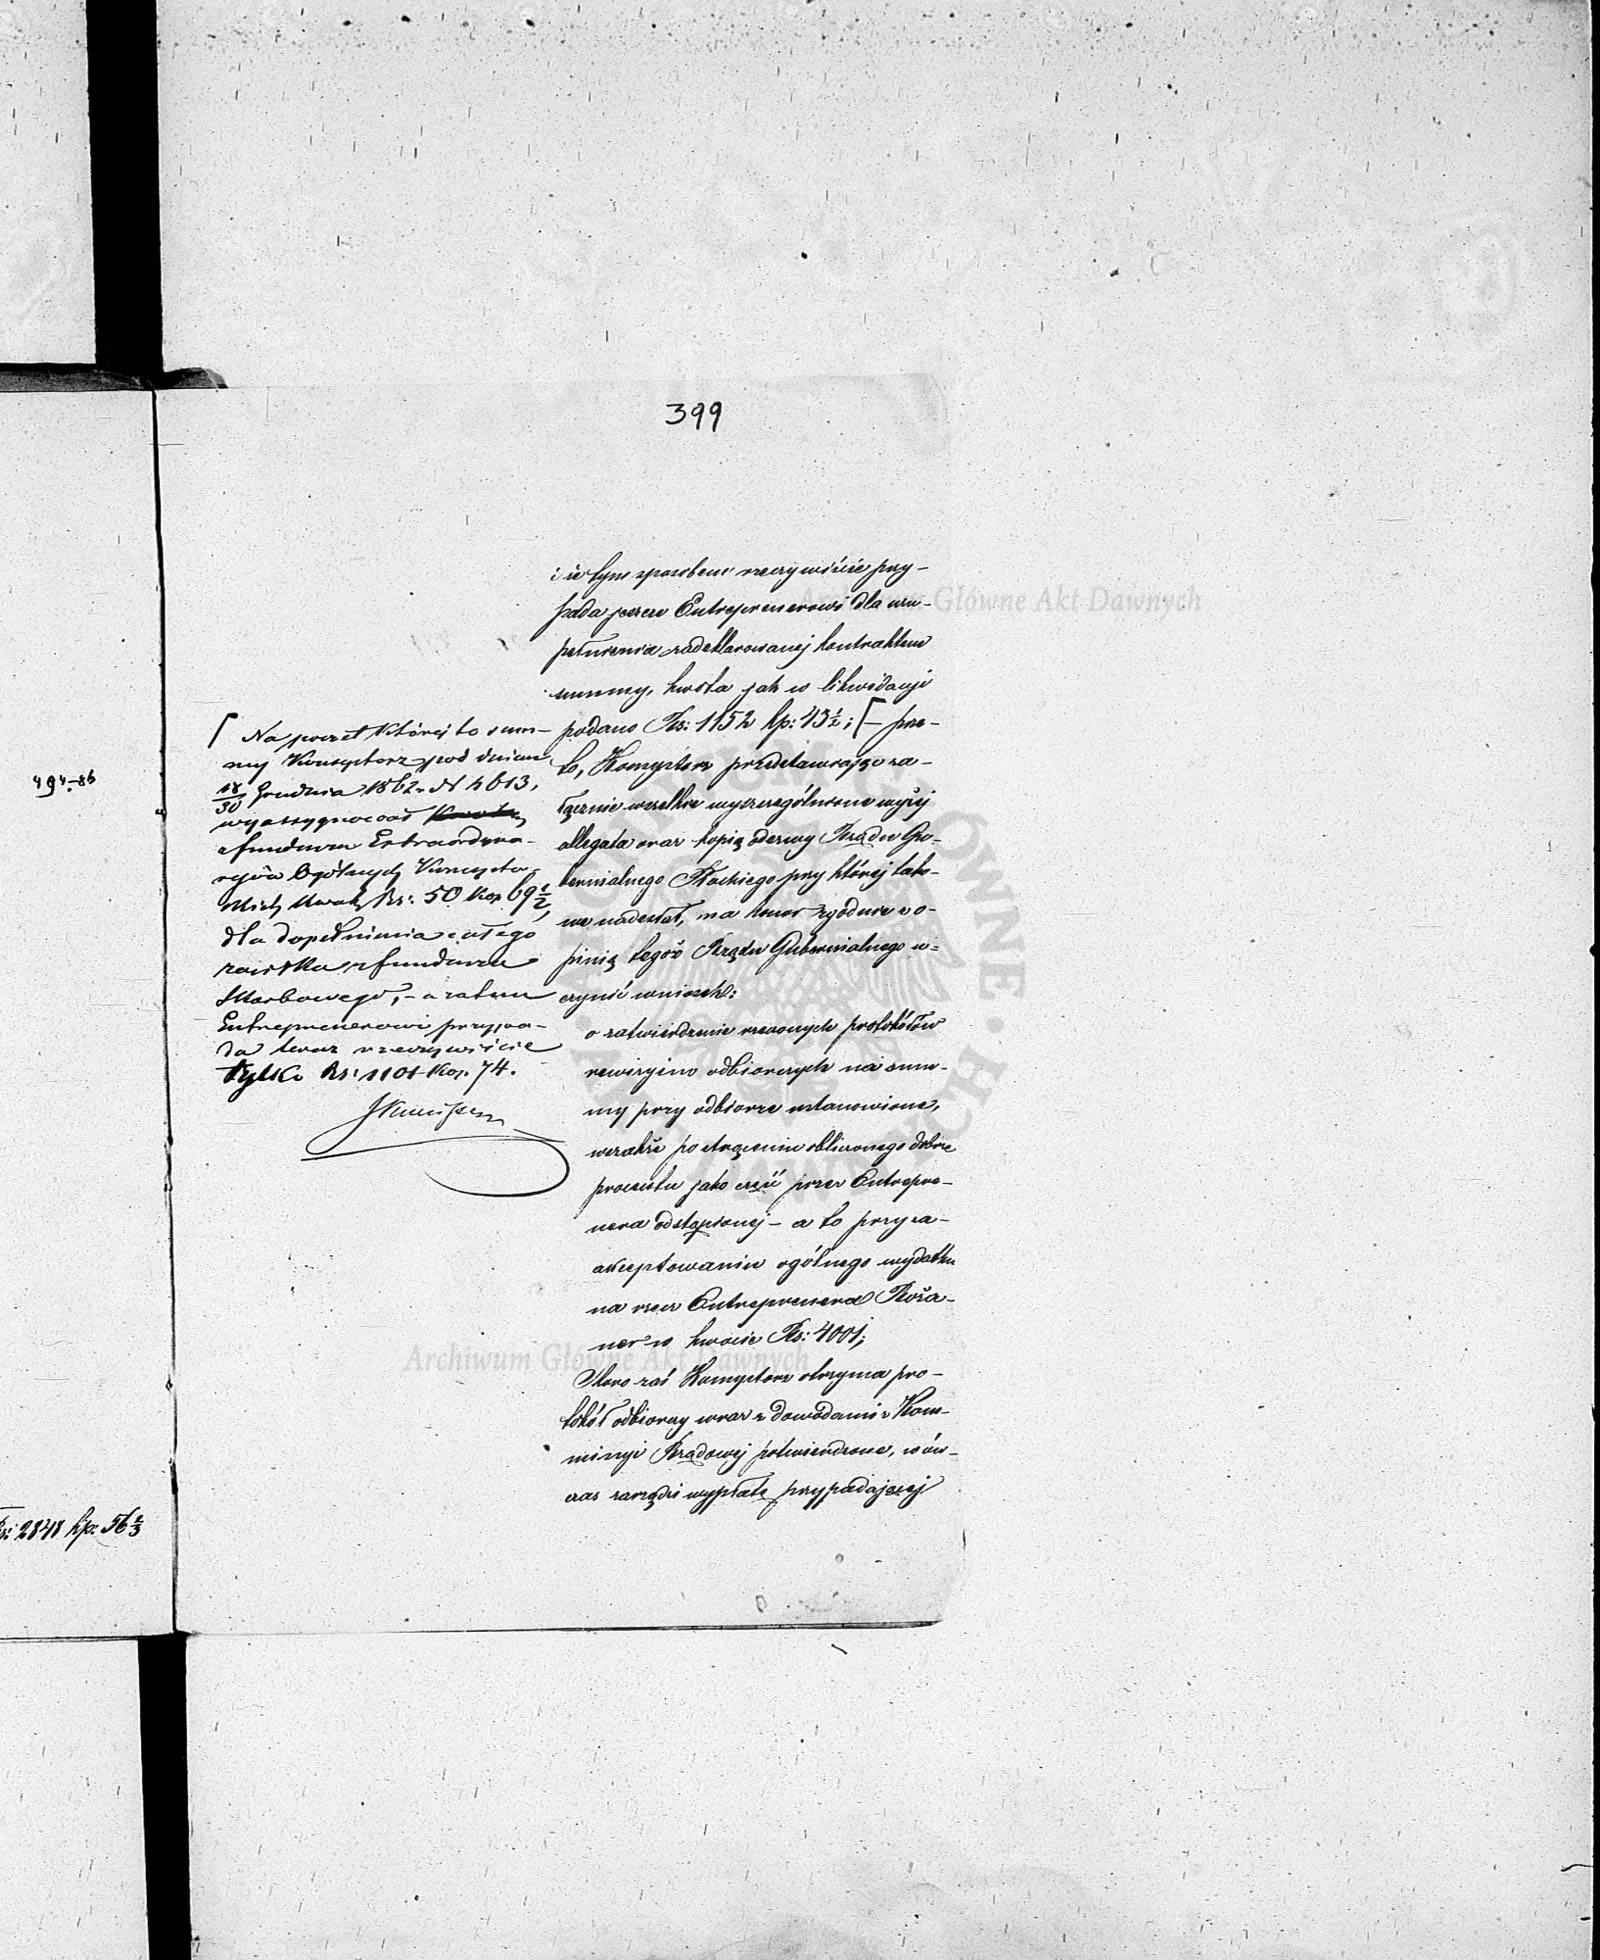 399
i że tym sposobem rzeczywiście przy-
pada jeszcze Entreprenerowi dla uzu-
pełnienia zadeklarowanej kontraktem
summy, kwota jak w likwidacji
podano Rs: 1152 kp: 43½; ⌈– prze-
to, Konsystorz przedstawiając za-
łącznie wszelkie wyszczególnione wyżej
allegata oraz kopią odezwy Rządu Gu-
bernialnego Płockiego przy której tako-
we nadesłał, ma honor zgodnie z o-
pinią tegoż Rządu Gubernialnego u-
czynić wniosek:
o zatwierdzenie rzeczonych protokółów
rewizyjno odbiorczych na sum-
my przy odbiorze ustanowione,
wszakże po strąceniu obliczonego dobrze
procentu jako część przez Entrepre-
nera odstąpionej – a to przy za-
akceptowaniu ogólnego wydatku
na rzecz Entreprenera Roża-
ner w kwocie Rs: 4001;
Skoro zaś Konsystorz otrzyma pro-
tokół odbiorczy wraz z dowodami z Kom-
missyi Rządowej potwierdzone, wów-
czas zarządzi wypłatę przypadającej
⌈ Na poczet której to sum-
my Konsystorz pod dniem
18/30 Grudnia 1862 N 4613,
wyassygnował
z funduszu Extraordyna-
ryjów Ogólnych Konsysto-
Rs: 50 Kop 69½,
dla dopełnienia całego
zasiłku z funduszu
Skarbowego, – a zatem
Entreprenerowi przypa-
da teraz rzeczywiście
tylko Rs: 1101 Kop. 74.
494.-86
Rs: 2848 kp: 56⅔
Archiwum Główne Akt Dawnych
Archiwum Główne Akt Dawnych